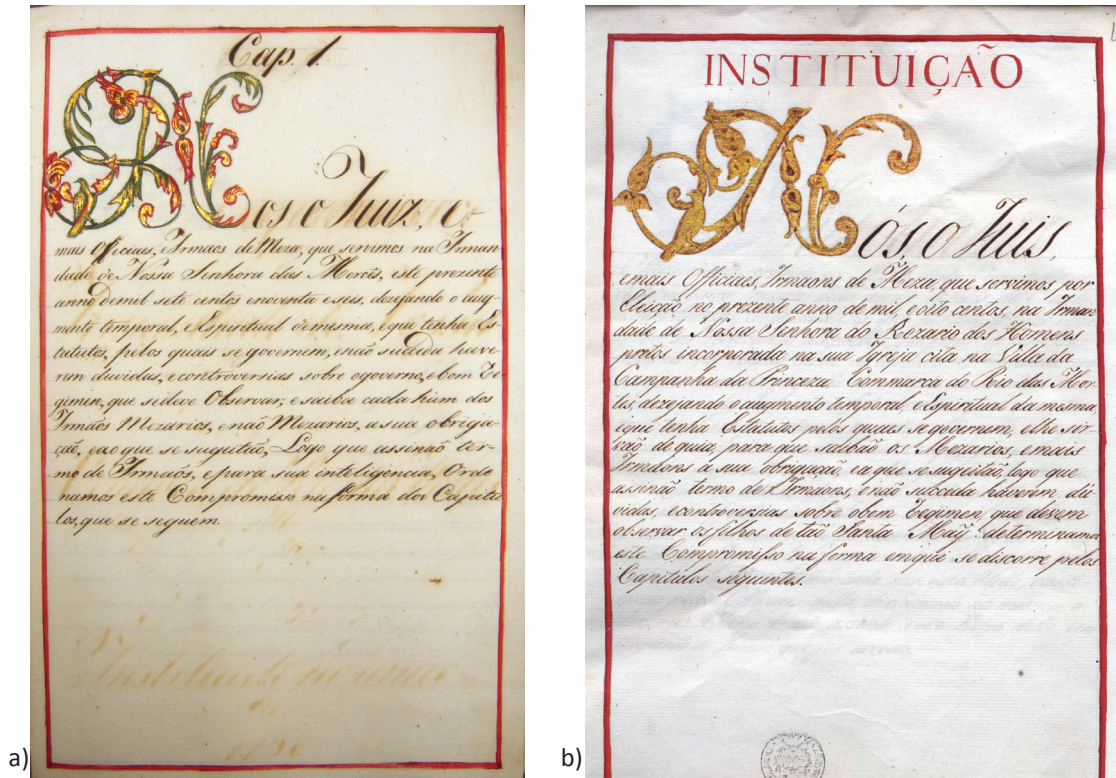 a)
Cap. 1.
Nos o Juiz, e
mais Officiaes, e Irmaos de Meza, que servimos na Irman
dade de Nossa Senhora das Mercês, este prezente
anno de mil sete centos enoventa e seis, dezejando o aug
mento temporal, e Espiritual demesma, eque tenha Es
tatutos, pelos quais se governem, enão suceda have
rem duvidas, econtroversias sobre ogoverno, ebom Re
gimen, que sedeve Observar, e saiba cada hum dos
Irmãos Mezarios, enaõ Mezarios, asua obriga
ção, eao que se sugeitaõ, Logo que assinaõ ter
mo de Irmaõs, epara sua inteligencia, Orde
namos este Compromisso na forma dos Capitu
los, que se seguem.
b)
INSTITUIÇÃO
Nós, o Juis,
emais Officiaes, Irmaons de Meza, que servimos por
Eleição no prezente anno de mil, e oito centos, na Irman
dade de Nossa Senhora do Rozario dos Homens
pretos incorporada na sua Igreja cita na Villa da
Campanha da Princeza Commarca do Rio das Mor
tes, dezejando o augmento temporal, e Espiritual da mesma,
eque tenha Estatutos pelos quaes se governem, elhe sir
vaõ de guia, para que saibaõ os Mezarios, emais
Irmaons a sua obrigaçaõ, ea que se sugeitaõ, logo que
assinaõ termo de Irmaons, enaõ succeda haverem du
vidas, econtroversias sobre obom Regimen, que devem
observar os filhos de taõ Santa Maÿ: determinamos
este Compromisso na forma emque se discorre pelos
Capitulos seguintes.